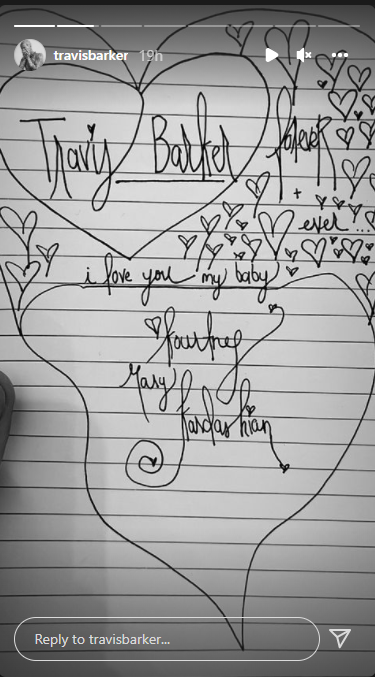 travisbarker 19h
Travis Barker forever
+
ever...
i love you my baby
Kourtney
Mary
Kardashian
Reply to travisbarker...